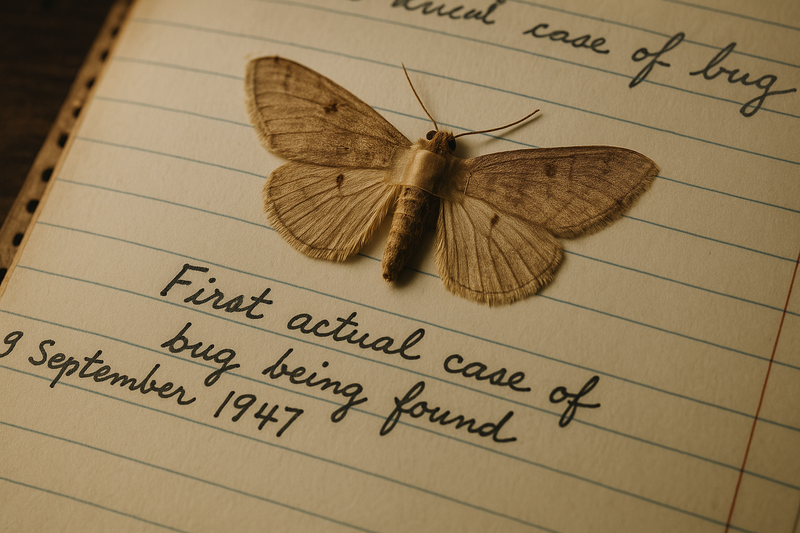 case of bug
First actual case of
bug being found
9 September 1947